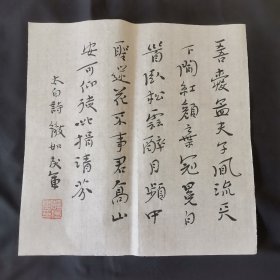 吾愛孟夫子風流天
下聞紅顏棄冠冕白
首臥松雲醉月頻中
聖迷花不事君高山
安可仰徒此揖清芬
太白詩